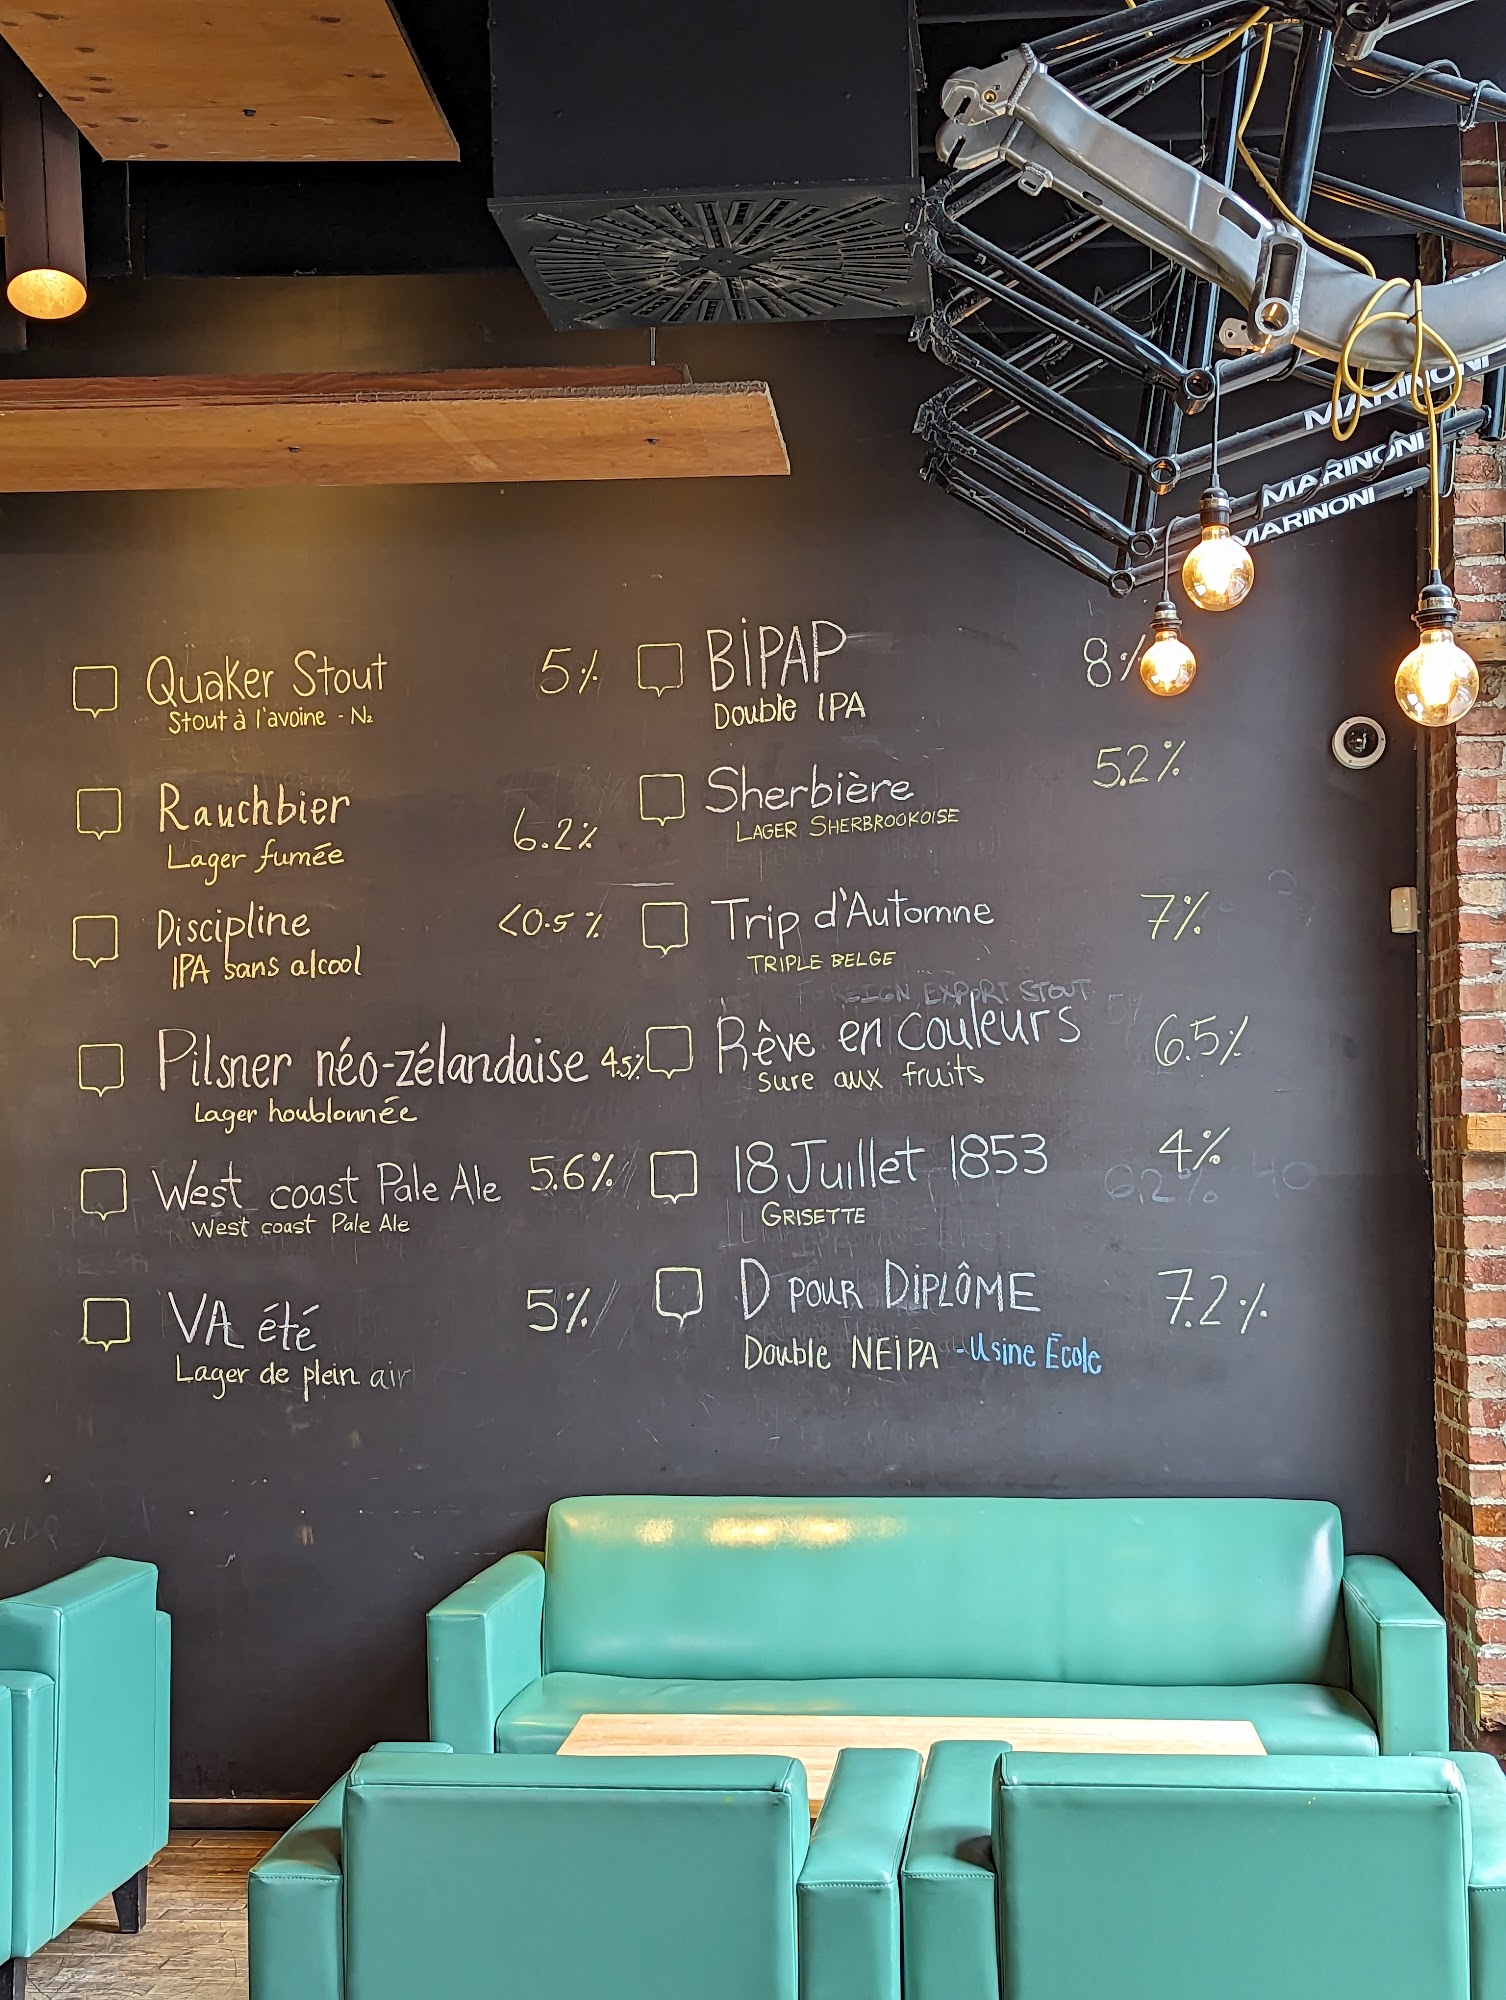 MARINONI
MARINONI
MARINONI
Quaker Stout 5%
Stout à l'avoine - N₂
Rauchbier 6.2%
Lager fumée
Discipline <0.5%
IPA sans alcool
Pilsner néo-zélandaise 4.5%
Lager houblonnée
West coast Pale Ale 5.6%
West coast Pale Ale
VA été 5%
Lager de plein air
BIPAP 8%
Double IPA
Sherbière 5.2%
LAGER SHERBROOKOISE
Trip d'Automne 7%
TRIPLE BELGE
FOREIGN EXPORT STOUT
Rêve en couleurs 6.5%
sure aux fruits
18 Juillet 1853 4%
6.2% 40
GRISETTE
D POUR DIPLÔME 7.2%
Double NEIPA - Usine École